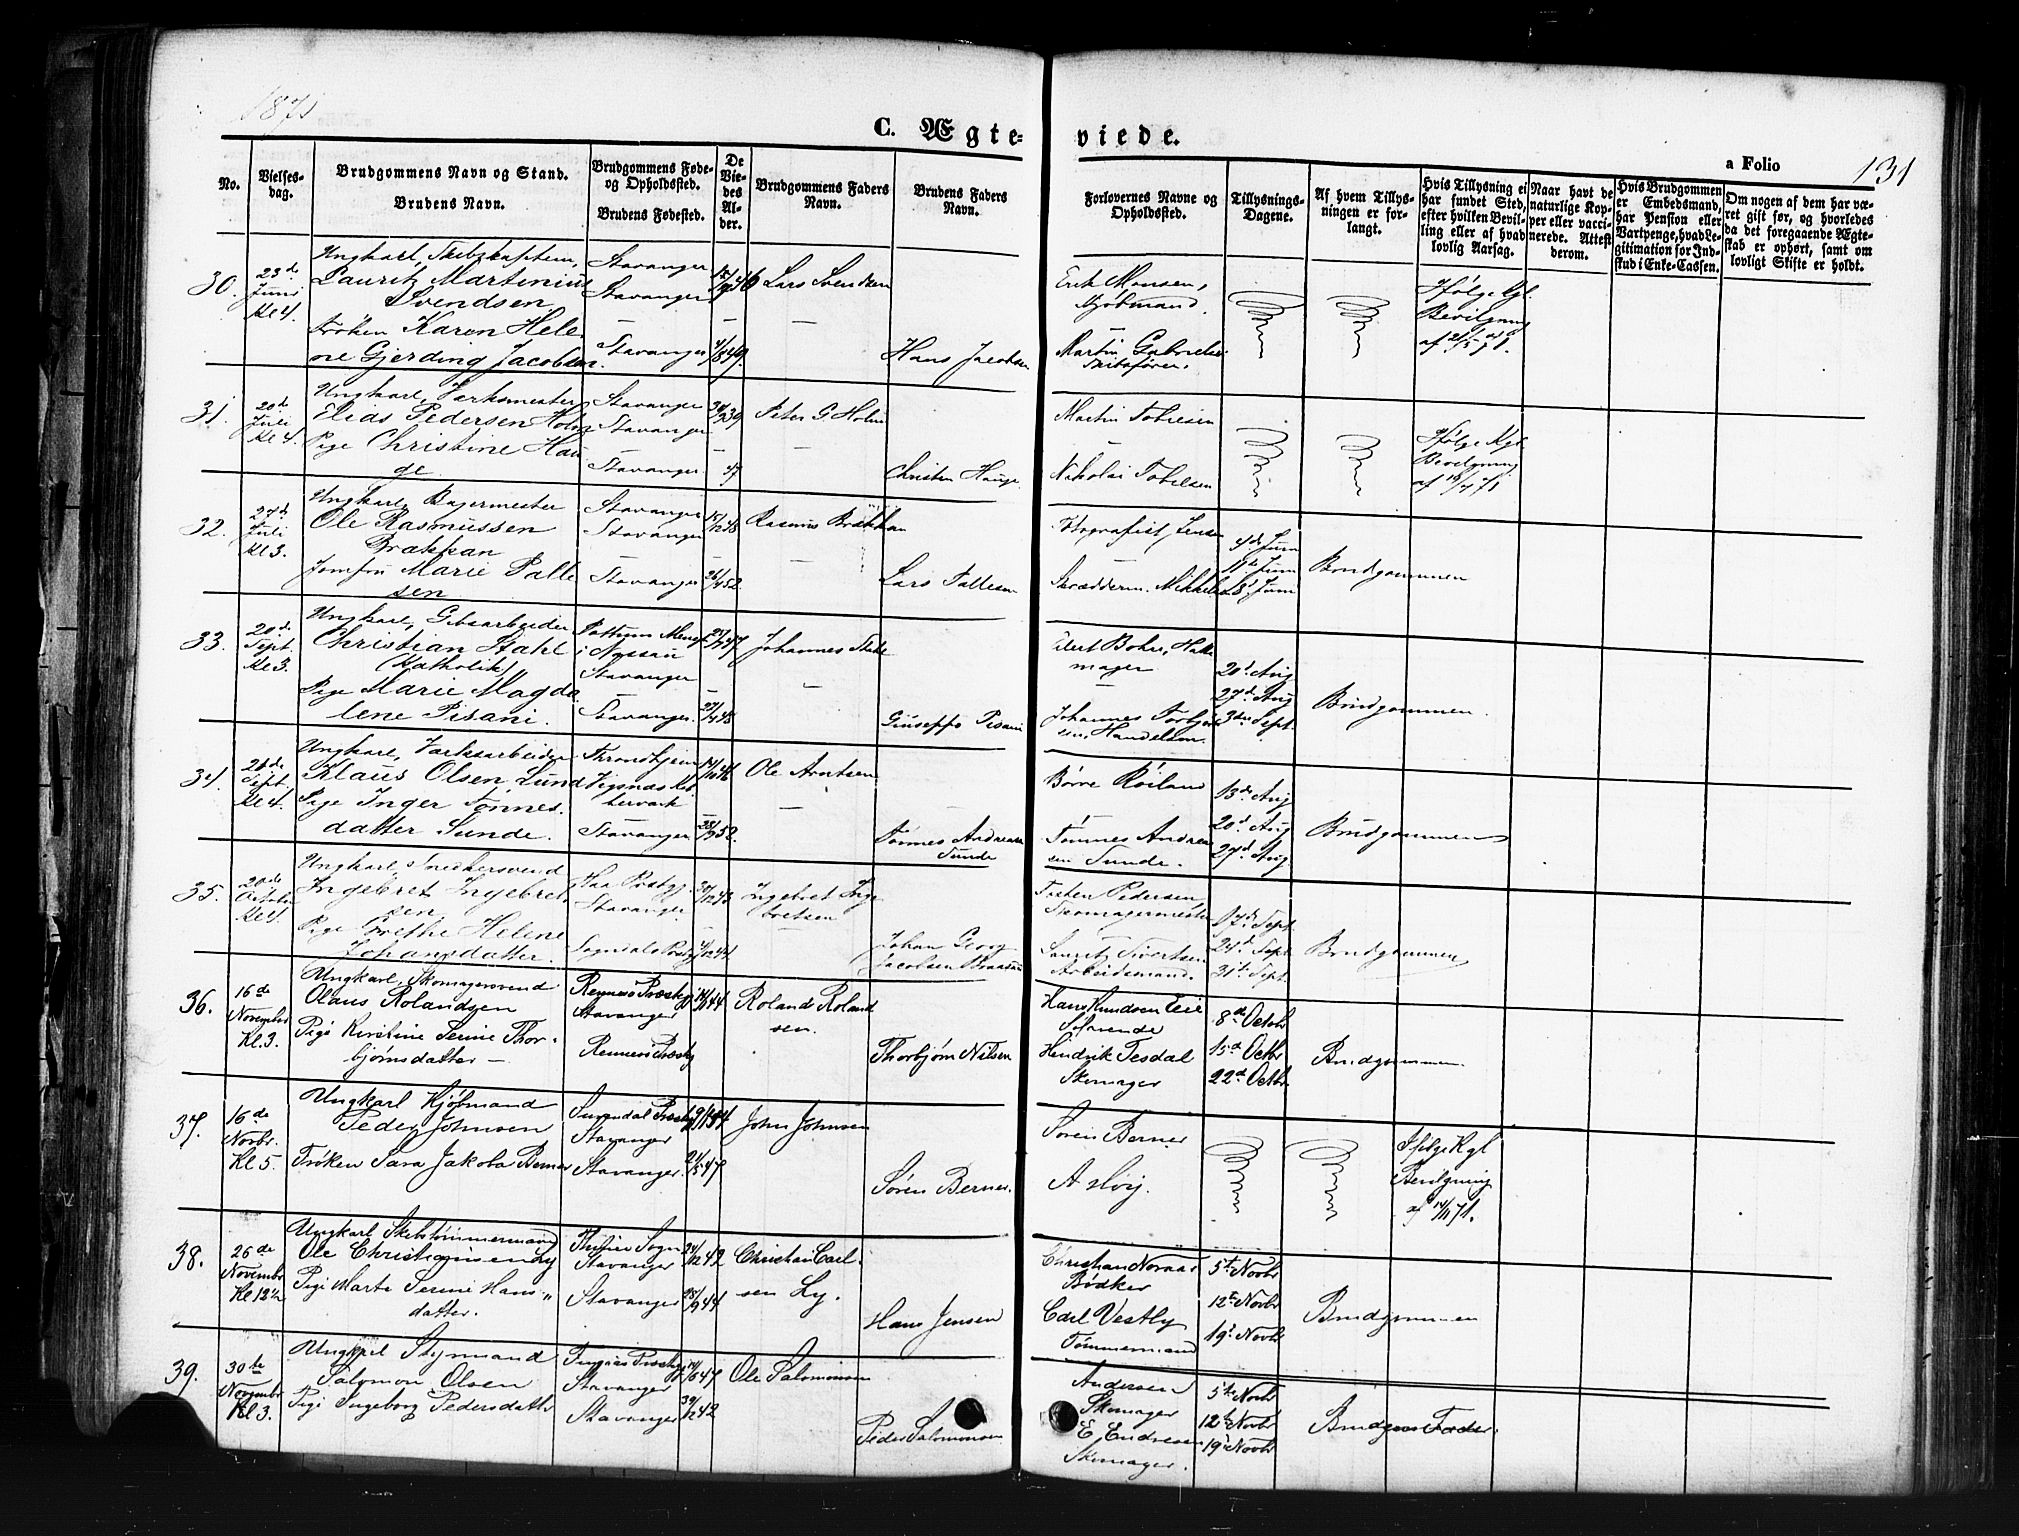 1871
C. Ægte-
viede.
a Folio
131
No.
Vielses-
dag.
Brudgommens Navn og Stand.
Brudens Navn.
Brudgommens Føde-
og Opholdssted.
Brudens Fødested.
De
Vie-
des
Al-
der.
Brudgommens Faders
Navn.
Brudens Faders
Navn.
Forlovernes Navne og
Opholdssted.
Tillysnings-
Dagene.
Af hvem Tillys-
ningen er for-
langt.
Hvis Tillysning ei
har fundet Sted,
efter hvilken Bevil-
ling eller af hvad
lovlig Aarsag.
Naar havt de
naturlige Kop-
per eller vacci-
nerede. Attest
derom.
Hvis Brudgommen
er Embedsmand,
har Pension eller
Vartpenge, hvad Le-
gitimation for Ind-
skud i Enke-Cassen.
Om nogen af dem har væ-
ret gift før, og hvorledes
da det foregaaende Ægte-
skab er ophørt, samt om
lovligt Skifte er holdt.
30.
23de
Juni
Kl 4.
Ungkarl, Skibskaptein,
Lauritz Martinius
Svendsen
Frøken Karen Hele
ne Gjerding Jacobsen.
Stavanger
Stavanger
Stavanger
Lars Svendsen
Hans Jacobsen
Erik Monsen,
Kjøbmand.
Martin Gabrielsen
Skibsfører.
Ifølge Kgl
Bevilgning
31.
20de
Juli
Kl 4.
Ungkarl, Værksmester
Elias Pedersen Holm
Pige Christine Hau
ge
Stavanger
Stavanger
Stavanger
Peter G Holm
Christen Hauge
Martin Tobiesen
Nikolai Tobiesen
Ifølge Kgl
Bevilgning
af 19/7 71
32.
27de
Juli
Kl 3.
Ungkarl, Bagermester
Ole Rasmussen
Brækhan
Jomfru Marie Palle
sen
Stavanger
Stavanger
Stavanger
26/4 52
Rasmus Brækhan
Lars Pallesen
Fotografist Jensen
4de Juni
11te Juni
18de Juni
Brudgommen
33.
20de
Sept.
Kl 3.
Ungkarl, Gibsarbeider
Christian Stahl
(Katholik)
Pige Marie Magda
lene Pisani.
i Nassau
Stavanger
Stavanger.
Johannes Stahl
Giuseppe Pisani
Eilert Bohr, Hatte
mager
20de Aug
27de Aug
3die Sept.
Brudgommen.
34.
Sept.
Kl 4.
Ungkarl, Værksarbeider
Klaus Olsen Lund
Pige Inger Tønnes
datter Sunde.
Throndhjem
Stavanger
Ole Arntsen
Tønnes Andreasen
Sunde
Børre Røiland
Tønnes Andrea
sen Sunde.
13de Aug
20de Aug
27de Aug
Brudgommen
35.
20de
October
Kl 4.
Ungkarl, Snedkersvend
Ingebret Ingebret
sen
Pige Grethe Helene
Johansdatter.
Haa Præstgj.
Stavanger
Sogndals Præstgj
Ingebret Inge
bretsen
Johan Georg
Jacobsen
Tosten Pedersen
Skomagermester
Lauritz Sivertsen
Arbeidsmand.
17de Sept
24de Sept
31te Sept.
Brudgommen
36.
16de
November
Kl. 3.
Ungkarl, Skomagersvend
Olaus Rolandsen
Pige Kirstine Serine Thor-
bjørnsdatter —
Rennesø Præstgj
Stavanger
Rennesø Præstgj
Roland Roland
sen.
Thorbjørn Nilsen
Hans Knudsen Eeie
Søfarende
Hendrik Tesdal
Skomager
8de Octobr
15de Octbr
22de Octbr.
Brudgommen.
37.
16de
Novbr.
Kl 5.
Ungkarl Kjøbmand
Peder Johnsen
Frøken Sara Jakoba Berner
Surendal Præstgj
Stavanger
Stavanger.
John Johnsen
Søren Berner.
Søren Berner
A Høij.
Ifølge Kgl
Bevilgning
af 14/11 71.
38.
26de
Novembr
Kl 12½
Ungkarl Skibstømmermand
Ole Christiansen Ly
Pige Marte Serine Hans-
datter.
Stavanger
Stavanger
24/12 42
28/9 44
Christian Carl-
sen Ly.
Hans Jensen
Christian Noraas
Bødker
Carl Vestly
Tømmermand
5te Novbr
12te Novbr
19de Novbr
Brudgommen
39.
30te
Novembr
Kl 3.
Ungkarl Styrmand
Salomon Olsen
Pige Ingeborg Pedersdatter
Stavanger
Stavanger
Ole Salomonsen
Peder Salomonsen
Andersen
Skomager
E. Endresen
Skomager.
5te Novbr
12te Novbr
19de Novbr
Brudgom̶m̶e̶n̶s̶ ̶F̶a̶d̶e̶r̶.